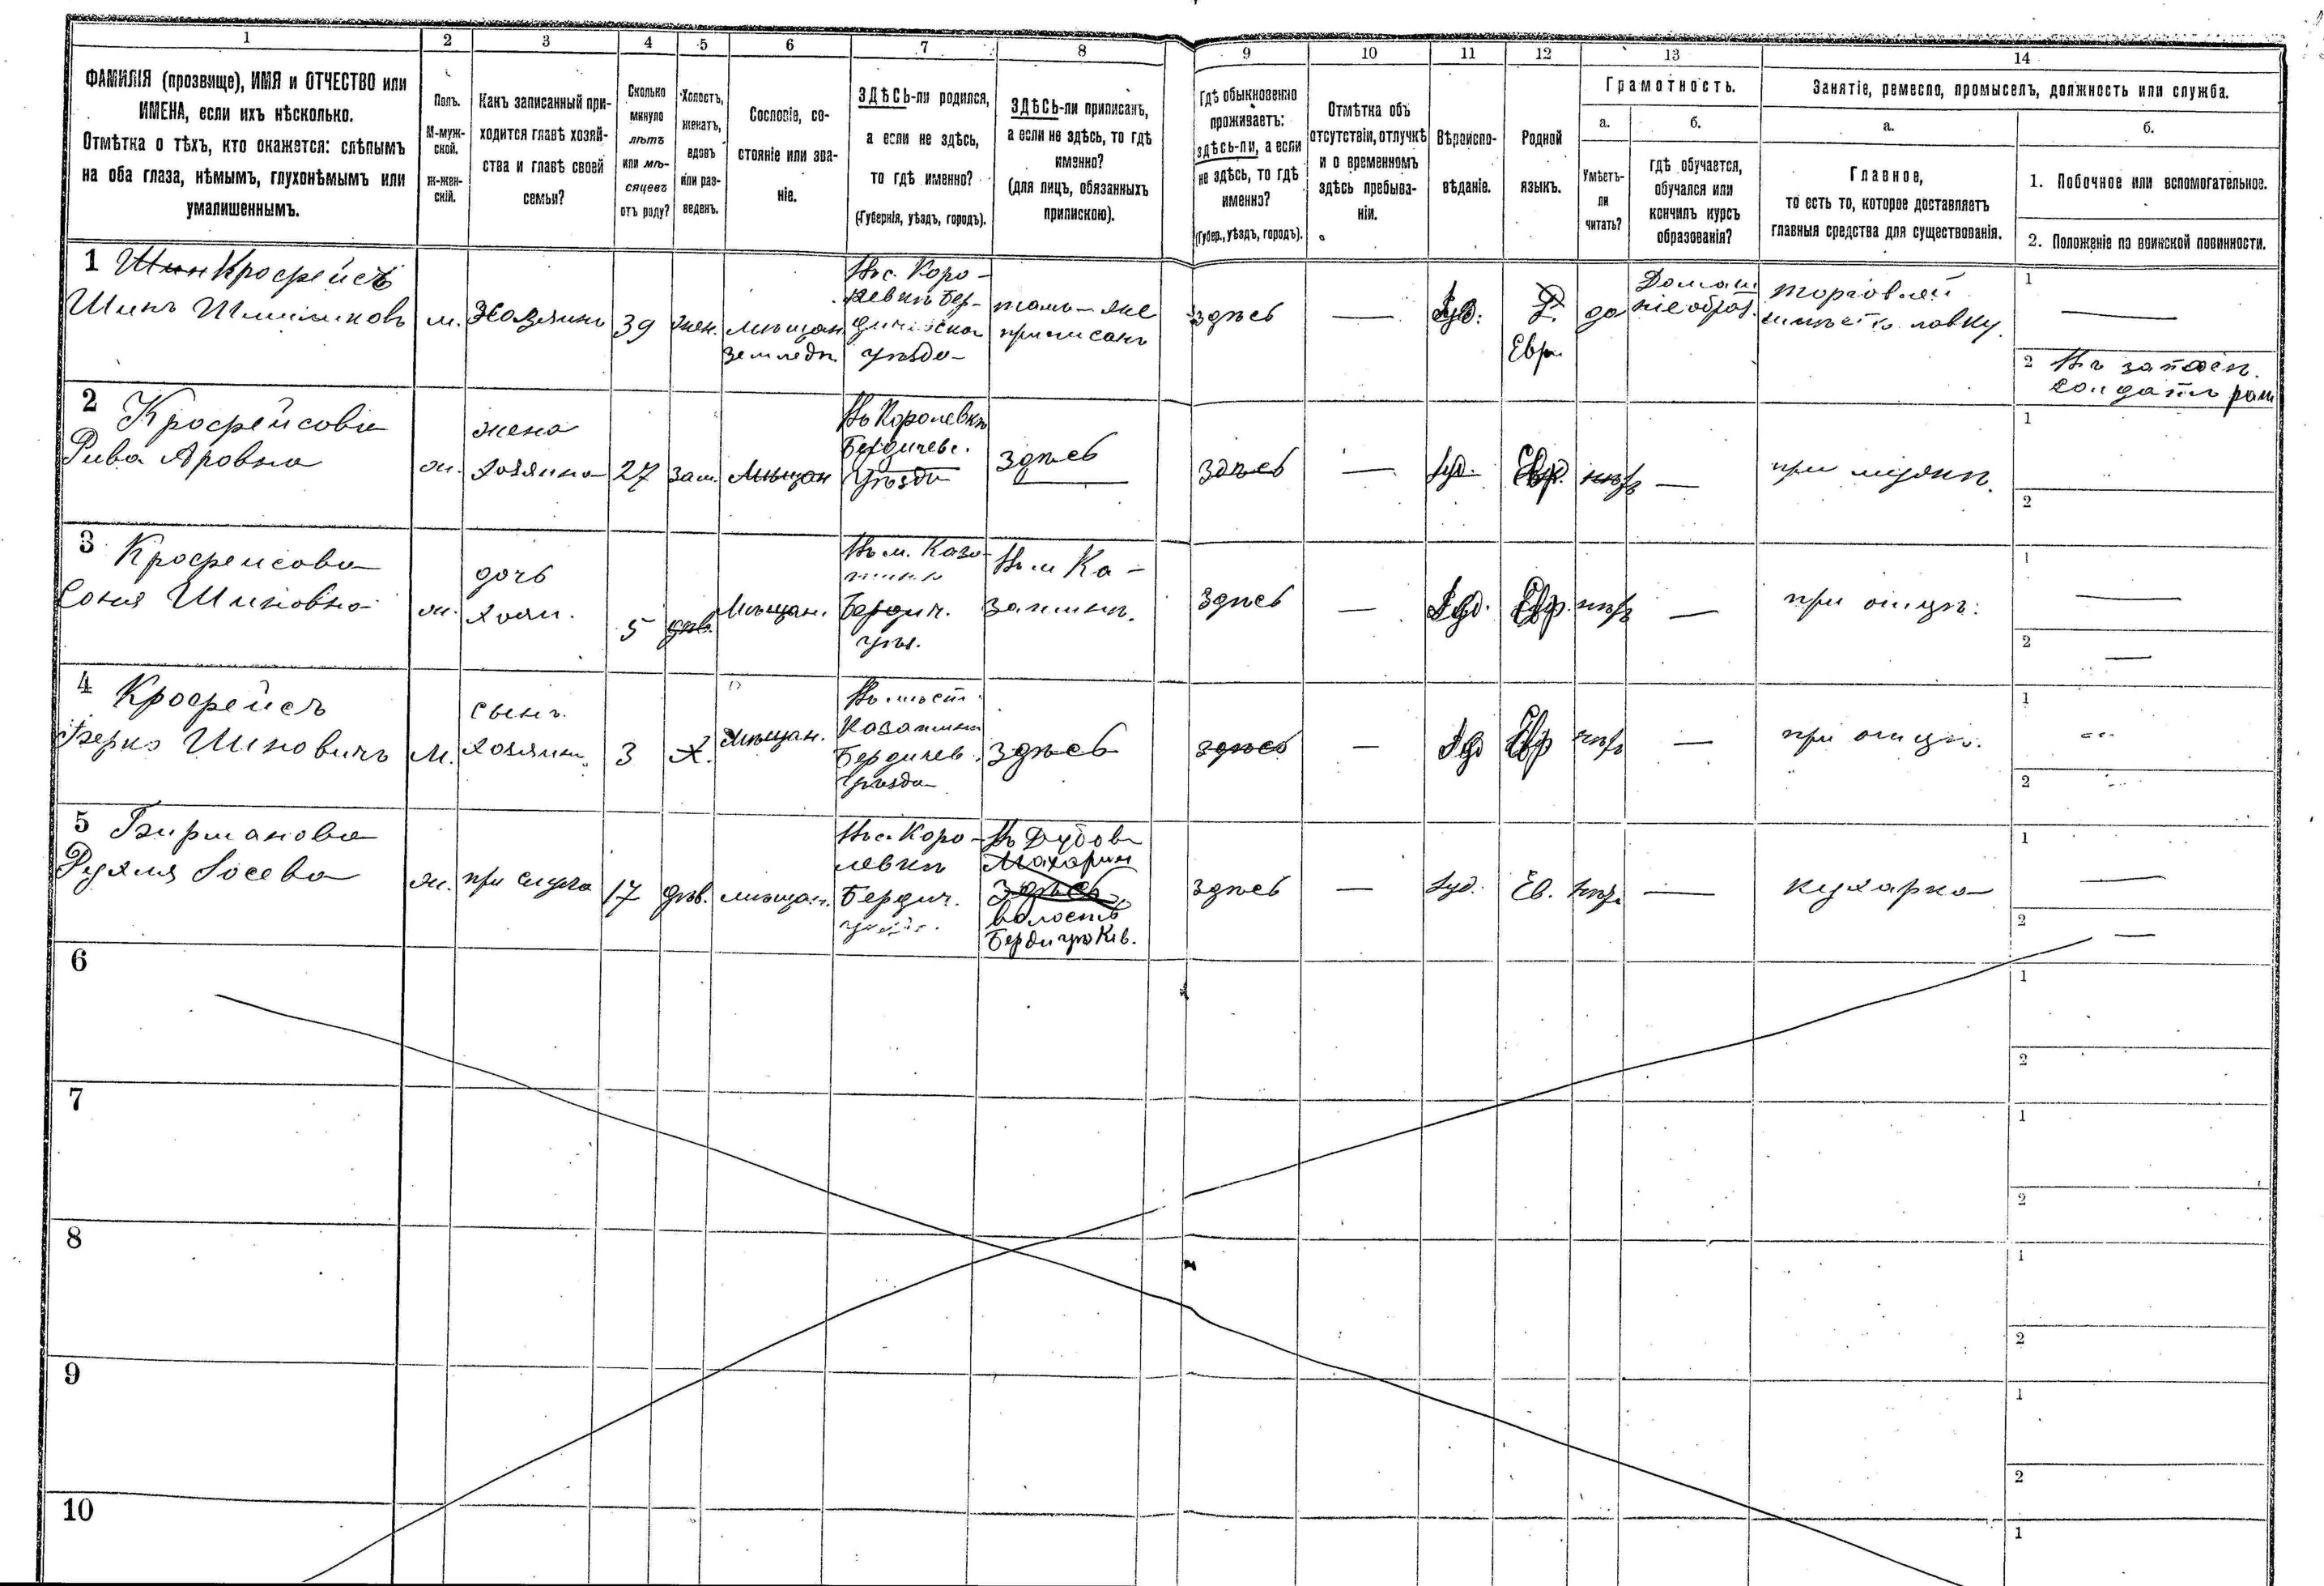 1 2 3 4 5 6 7 8 9 10 11 12 13 14
ФАМИЛІЯ (прозвище), ИМЯ и ОТЧЕСТВО или
ИМЕНА, если ихъ нѣсколько.
Отмѣтка о тѣхъ, кто окажется: слѣпымъ
на оба глаза, нѣмымъ, глухонѣмымъ или
умалишеннымъ.
Полъ.
М-муж-
ской.
Ж-жен-
скій.
Какъ записанный при-
ходится главѣ хозяй-
ства и главѣ своей
семьи?
Сколько
минуло
лѣтъ
или мѣ-
сяцевъ
отъ роду?
Холостъ,
женатъ,
вдовъ
или раз-
веденъ.
Сословіе, со-
стояніе или зва-
ніе.
ЗДѢСЬ-ли родился,
а если не здѣсь,
то гдѣ именно?
(Губернія, уѣздъ, городъ).
ЗДѢСЬ-ли приписанъ,
а если не здѣсь, то гдѣ
именно?
(для лицъ, обязанныхъ
припискою).
Гдѣ обыкновенно
проживаетъ:
здѣсь-ли, а если
не здѣсь, то гдѣ
именно?
(Губер., уѣздъ, городъ).
Отмѣтка объ
отсутствіи, отлучкѣ
и о временномъ
здѣсь пребыва-
ніи.
Вѣроиспо-
вѣданіе.
Родной
языкъ.
Грамотность.
а.
Умѣетъ-
ли
читать?
б.
гдѣ обучается,
обучался или
кончилъ курсъ
образованія?
Занятіе, ремесло, промыселъ, должность или служба.
а.
Главное,
то есть то, которое доставляетъ
главныя средства для существованія.
б.
1. Побочное или вспомогательное.
2. Положеніе по воинской повинности.
1 Кросфейсъ
Шинъ
м.
Хозяинъ
39
жен.
мѣщан
земледѣ.
Въ с. Коро-
левкѣ Бер-
дичевска
уѣзда
тамъ-же
приписанъ
здѣсь
Іуд.
Евр.
да
Домаш
ніе образ.
торговлей
имѣетъ лавку.
1
2 Въ запасѣ.
солдатъ
2 Кросфейсова
Рива Яровна
ж.
жена
хозяина
27
зам.
Мѣщан
Въ Королевкѣ
Бердичевс.
Уѣзда
здѣсь
здѣсь
Іуд.
Евр.
нѣтъ
при мужѣ.
1
2
3 Кросфейсова
Сония Шиновна
ж.
дочь
хозяи.
5
дѣв.
Мѣщан.
Въ м. Каза-
тинѣ
Бердич.
уѣз.
Въ м Ка-
затинѣ.
здѣсь
Іуд.
Евр.
нѣтъ
при отцѣ.
1
2
4 Кросфейсъ
Берко Шиновичъ
М.
сынъ.
хозяин.
3
Х.
мѣщан.
Въ мѣст.
Казатинѣ
Бердичев.
уѣзда
здѣсь
здѣсь
Іуд
Евр
нѣтъ
при отцѣ.
1
2
5 Бирманова
Рухля Іосева
ж.
при слуга
17
дѣв.
мѣщан.
Въ с. Коро-
левкѣ
Бердич.
Въ Дубово
Махарин
здѣсь
волость
Берди уѣ Кіев.
здѣсь
Іуд.
Ев.
нѣт.
кухарка
1
2
6
1
2
7
1
2
8
1
2
9
1
2
10
1